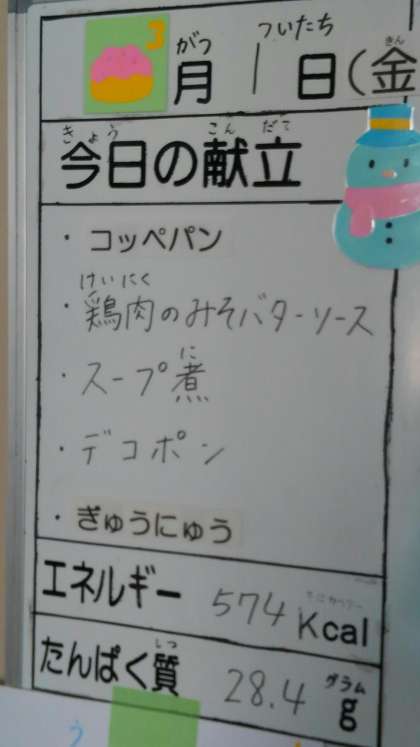 がつ ついたち きん
3月1日(金
きょう こんだて
今日の献立
・コッペパン
けいにく
・鶏肉のみそバターソース
に
・スープ煮
・デコポン
・ぎゅうにゅう
エネルギー 574 Kcal
しつ グラム
たんぱく質 28.4 g
う